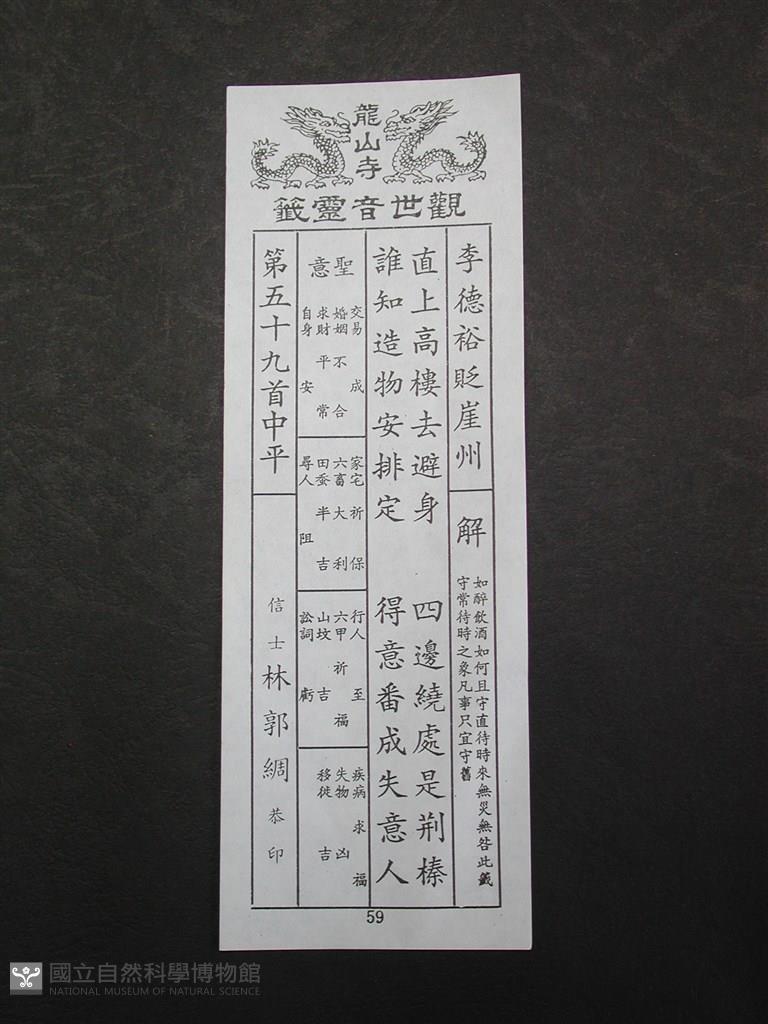 龍山寺
觀世音靈籤
李德裕貶崖州
解
如醉飲酒如何且守直待時來無災無咎此籤
守常待時之象凡事只宜守舊
直上高樓去避身 四邊繞處是荆榛
誰知造物安排定 得意番成失意人
聖意
交易 成
婚姻 不合
求財 平常
自身 安
家宅 祈保
六畜 大利
田蚕 半吉
尋人 阻
行人 至
六甲 祈福
山坟 吉
訟詞 虧
疾病 求福
失物 凶
移徙 吉
第五十九首中平
信士林郭綢恭印
59
國立自然科學博物館
NATIONAL MUSEUM OF NATURAL SCIENCE